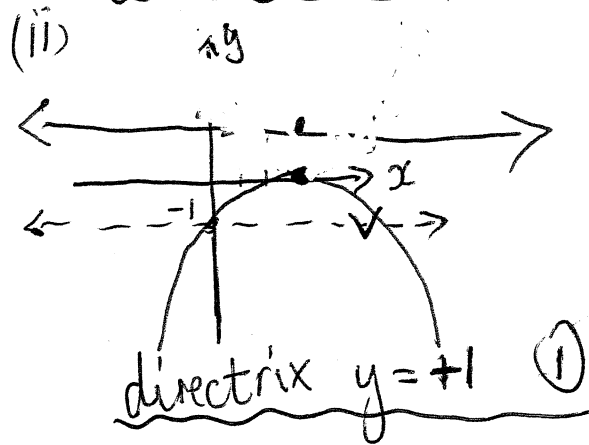 (ii)
y
x
-1
directrix y = +1 ①